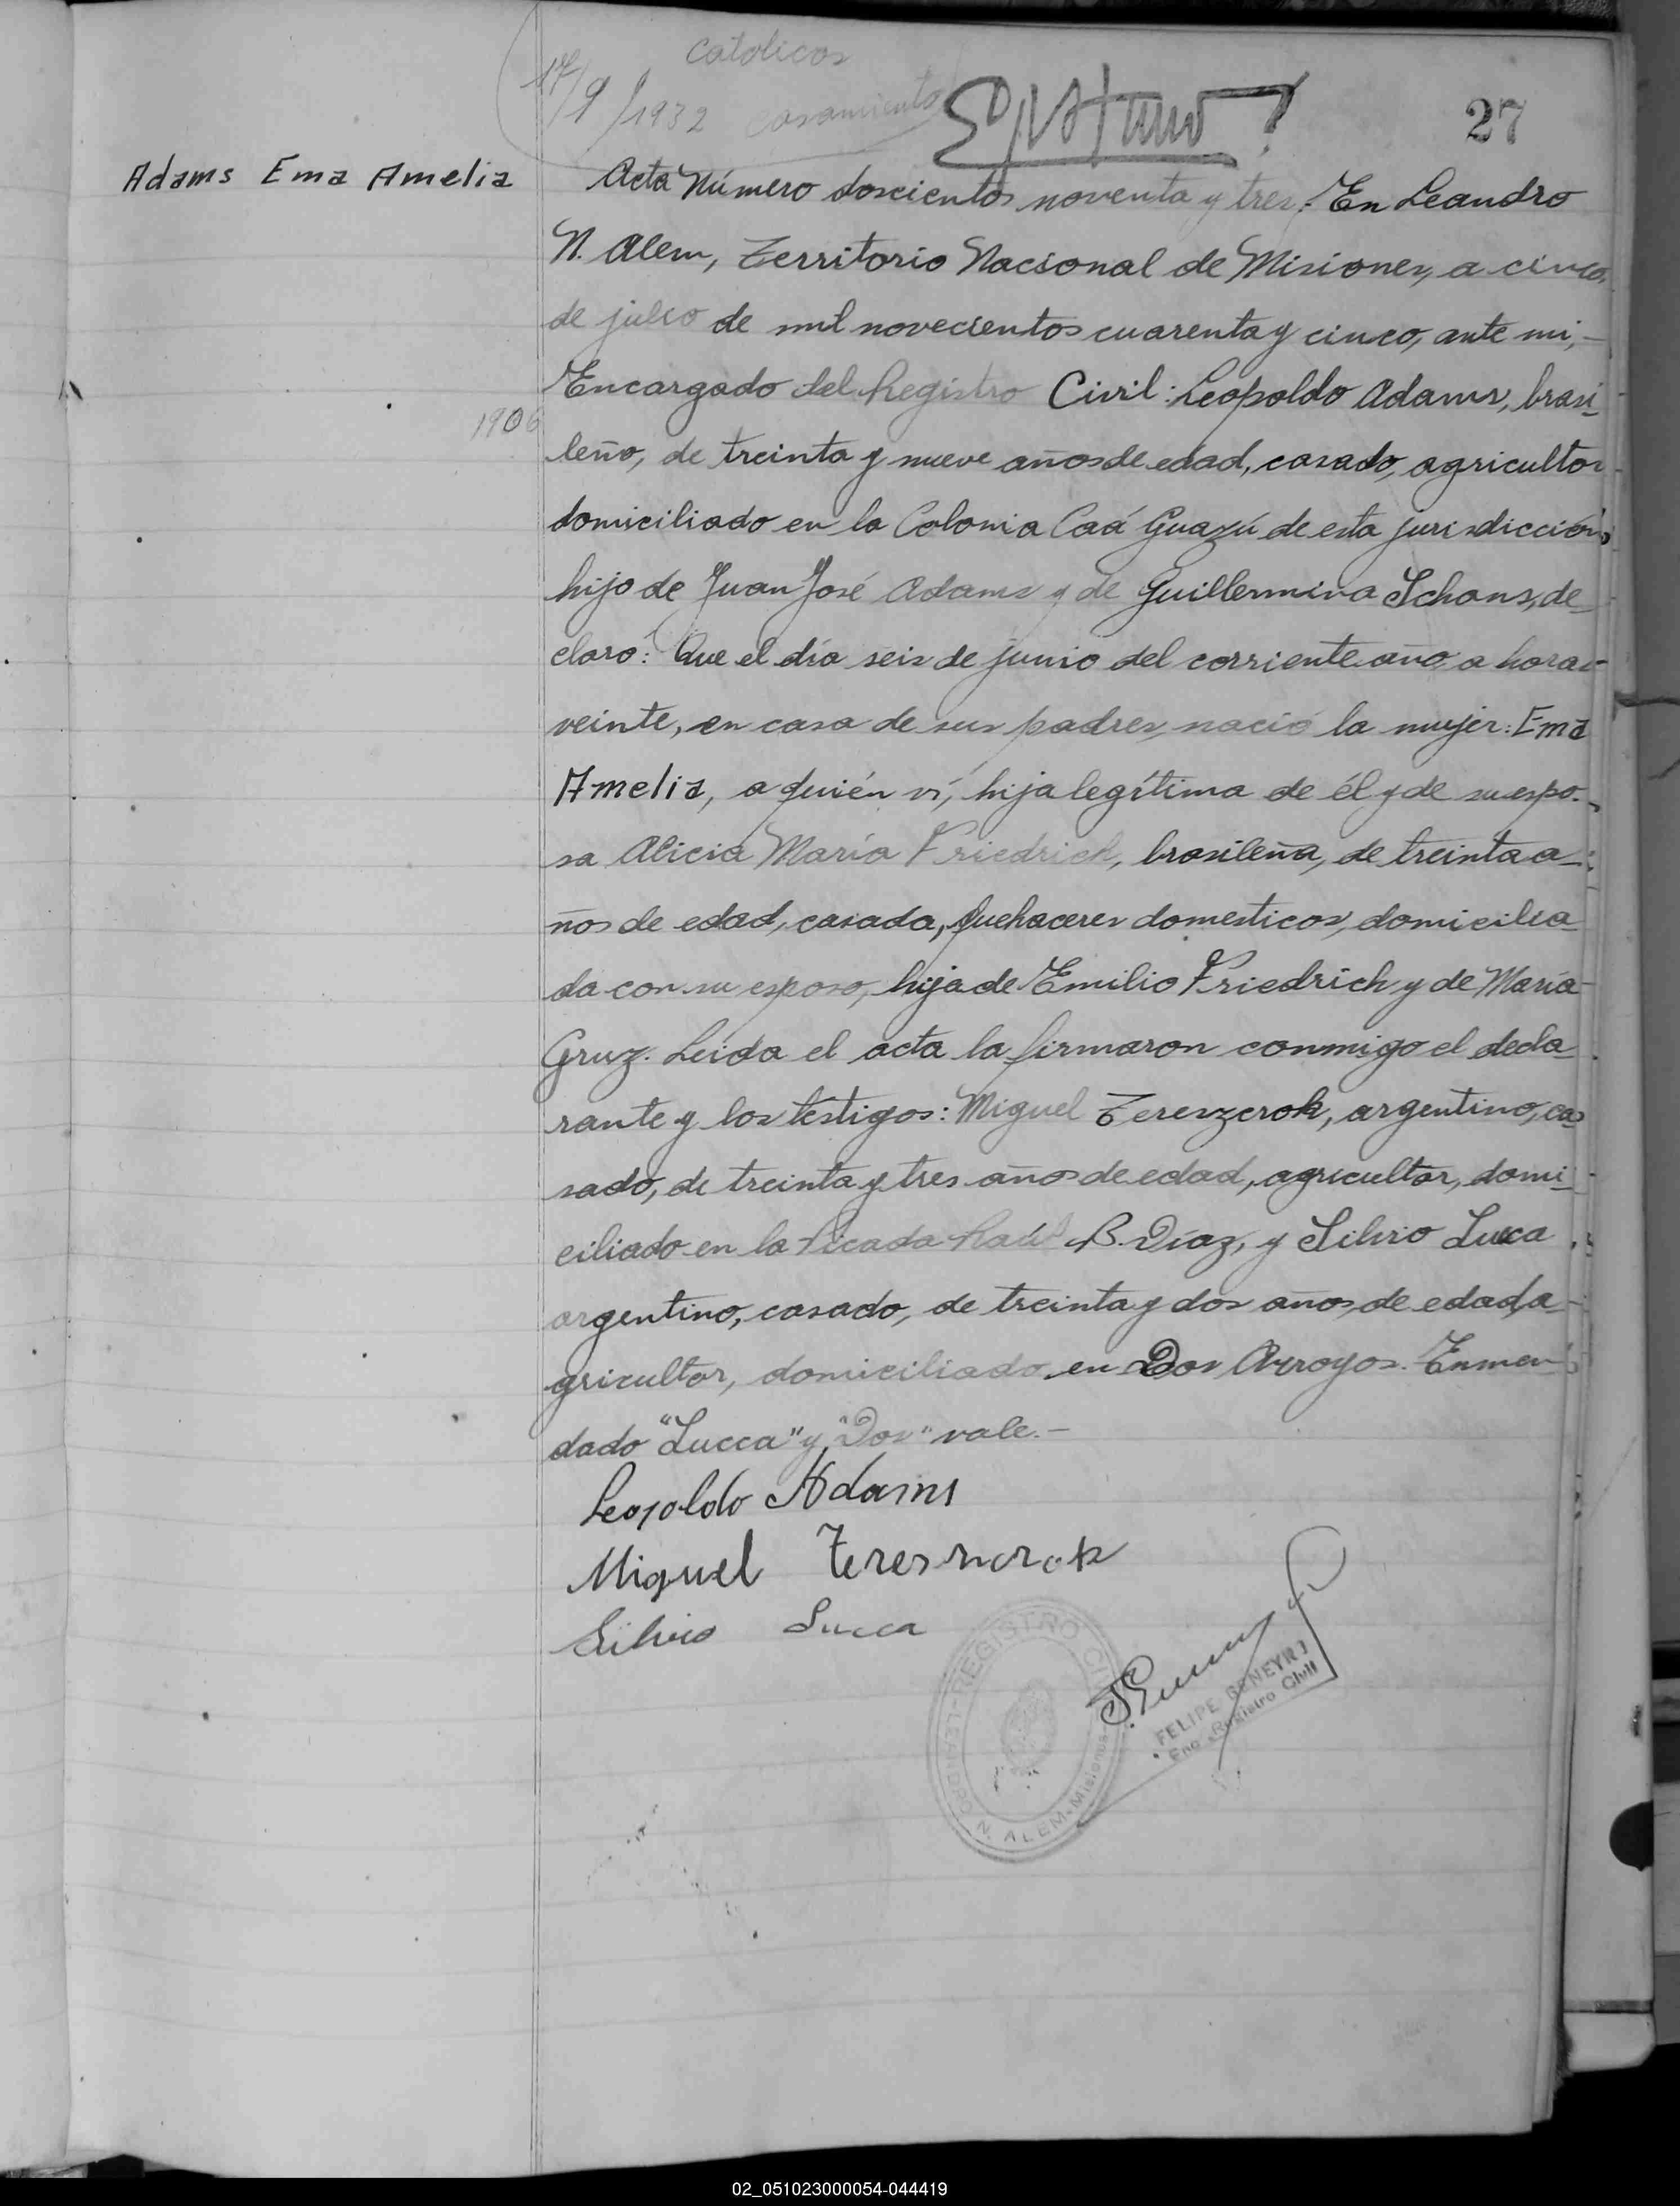 Catolicos
17/9/1932 casamiento
27
Adams Ema Amelia
Acta Número doscientos noventa y tres: En Leandro
N. Alem, Territorio Nacional de Misiones, a cinco
de julio de mil novecientos cuarenta y cinco, ante mi,-
Encargado del Registro Civil: Leopoldo Adams, brasi
1906
leño, de treinta y nueve años de edad, casado, agricultor
domiciliado en la Colonia Caá Guazú de esta jurisdicción,
hijo de Juan José Adams y de Guillermina Schons, de
claro: Que el día seis de junio del corriente año a horas-
veinte, en casa de sus padres, nació la mujer: Ema
Amelia, a quién ví, hija legítima de él y de su espo-
sa Alicia María Friedrich, brasileña, de treinta a
ños de edad, casada, quehaceres domesticos, domicilia
da con su esposo, hija de Emilio Friedrich y de María
Gruz. Leida el acta la firmaron conmigo el decla
rante y los testigos: Miguel Tereszcrok, argentino, ca
sado, de treinta y tres años de edad, agricultor, domi
ciliado en la Picada Raúl B. Díaz, y Silvio Lucca
argentino, casado, de treinta y dos años de edad, a
gricultor, domiciliado en Dos Arroyos. Enmen
dado "Lucca" y "Dos" vale.-
Leopoldo Adams
Miguel
Silvio Lucca
REGISTRO CIVIL
LEANDRO N. ALEM-Misiones
FELIPE BENEYRI
Enc. Registro Civil
02_051023000054-044419